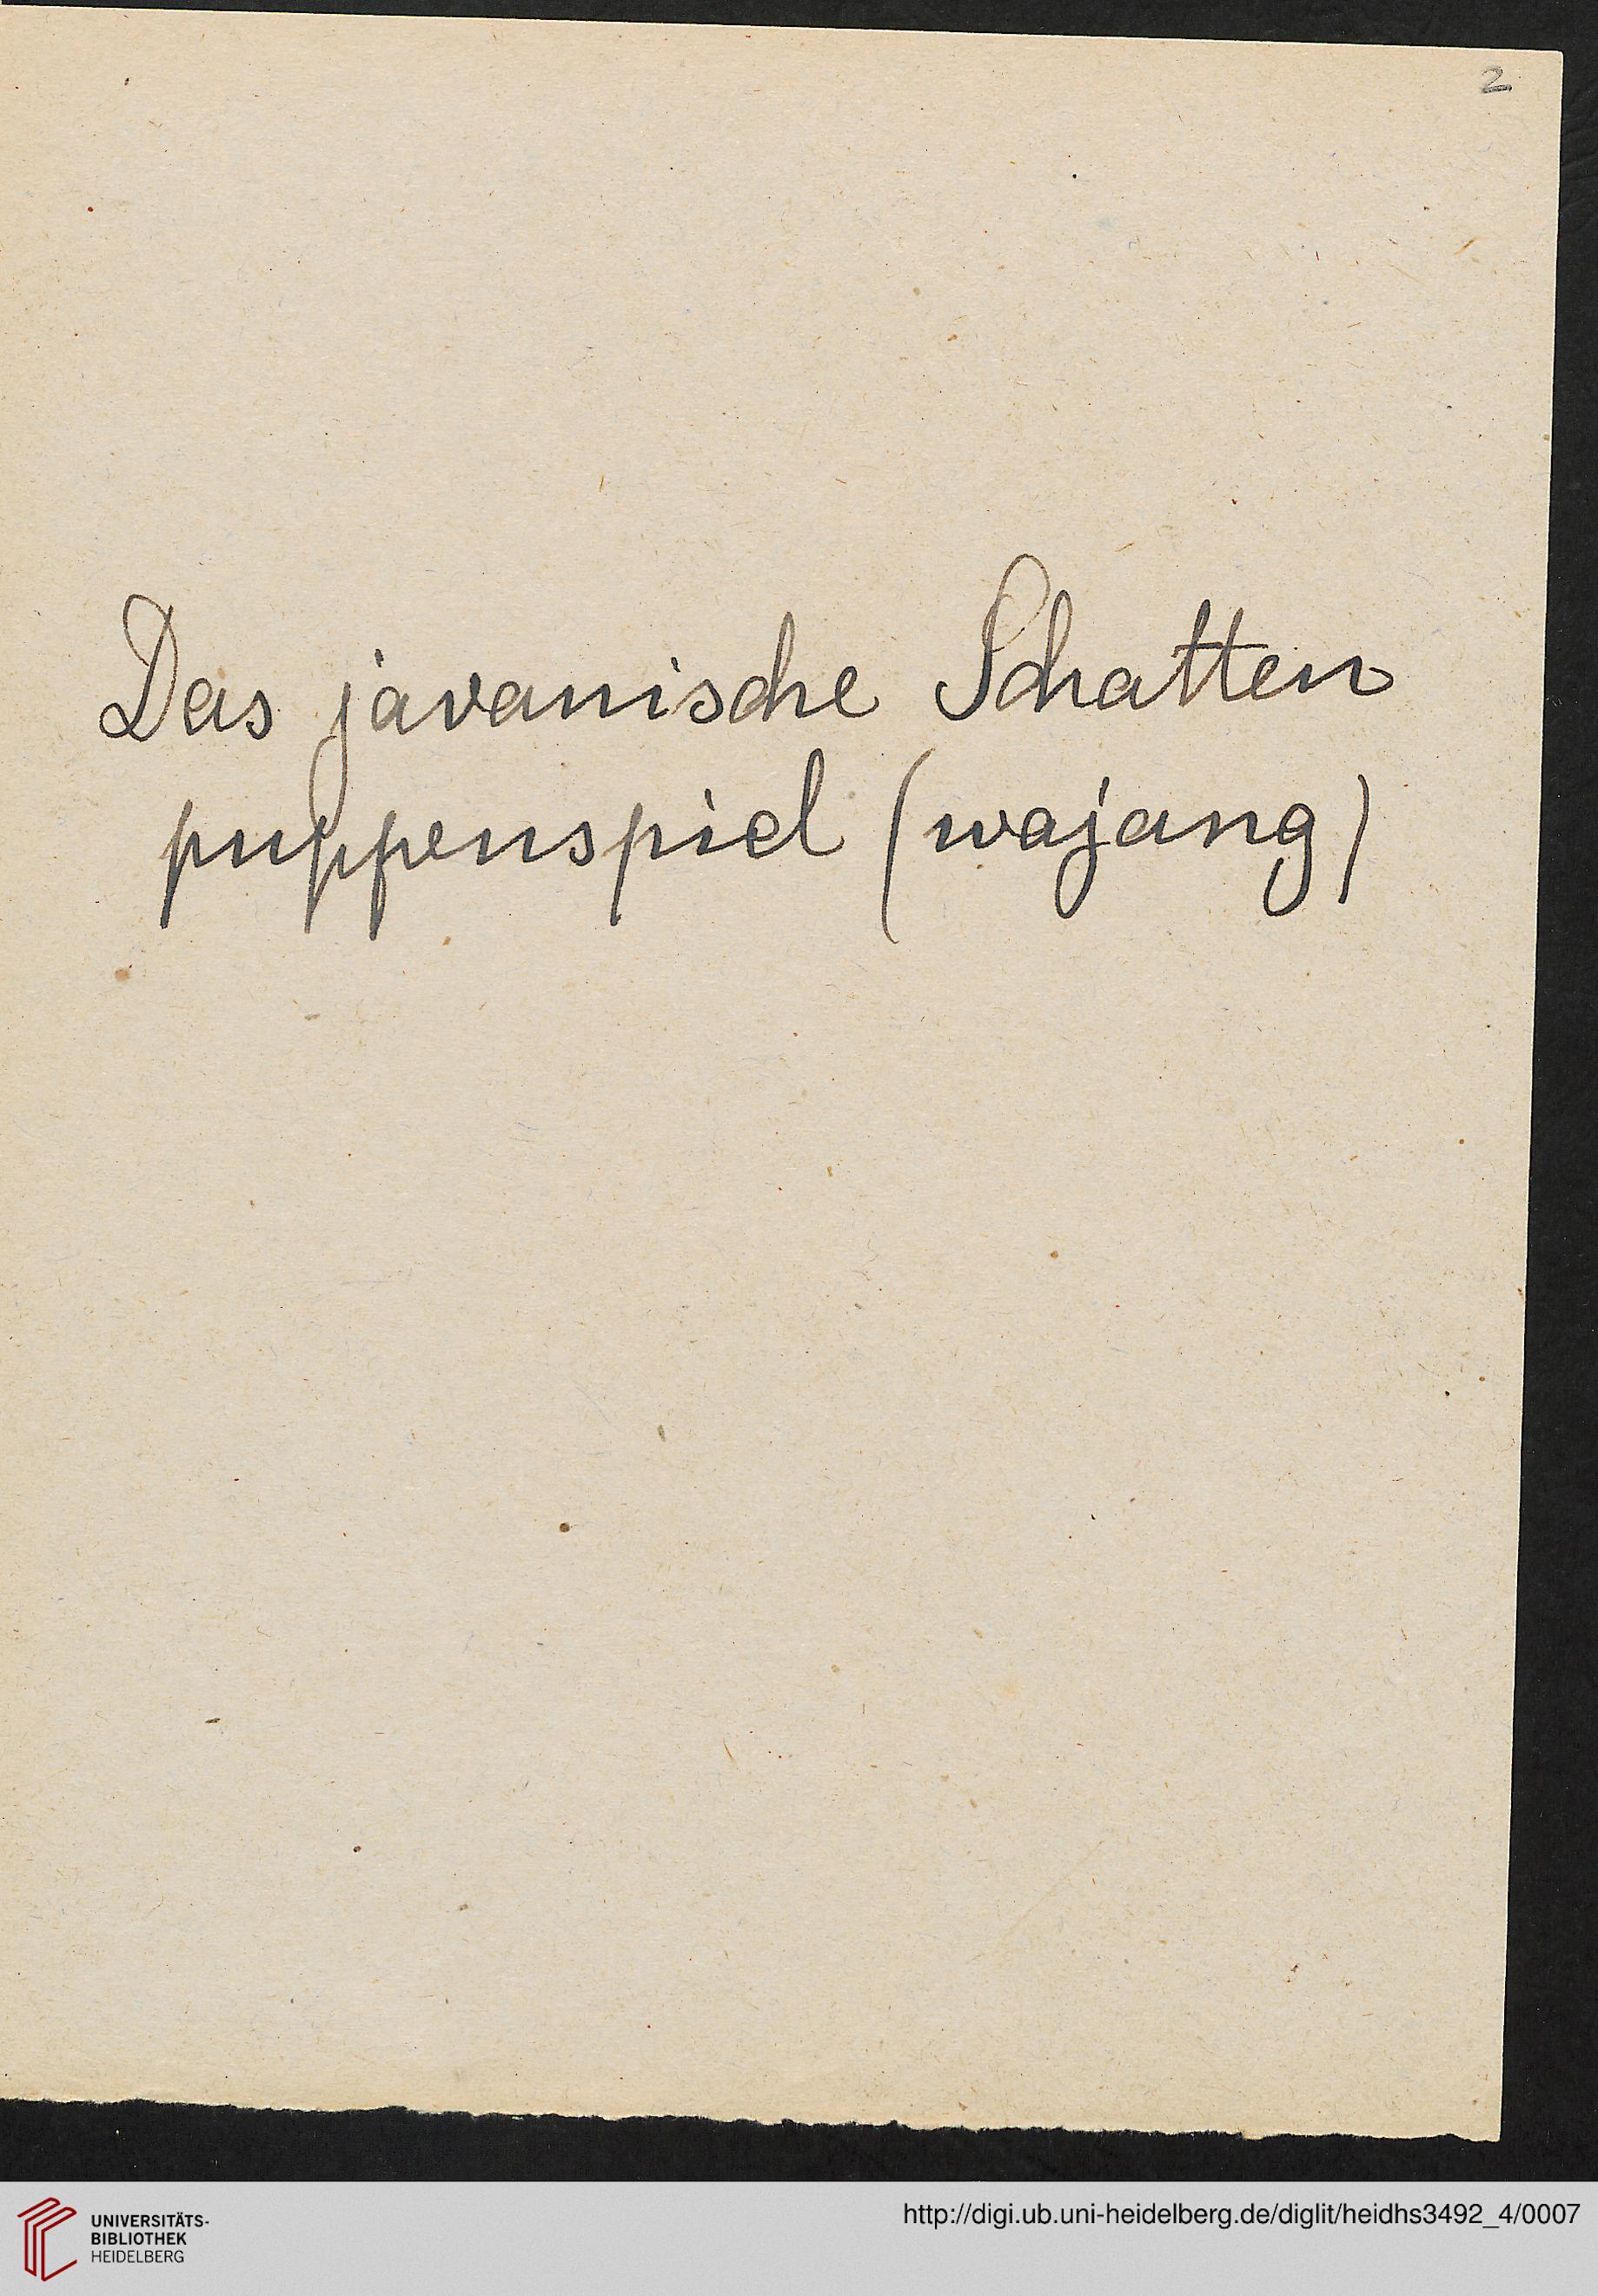 2
Das javanische Schatten
puppenspiel (wajang)
UNIVERSITÄTS-
BIBLIOTHEK
HEIDELBERG
http://digi.ub.uni-heidelberg.de/diglit/heidhs3492_4/0007